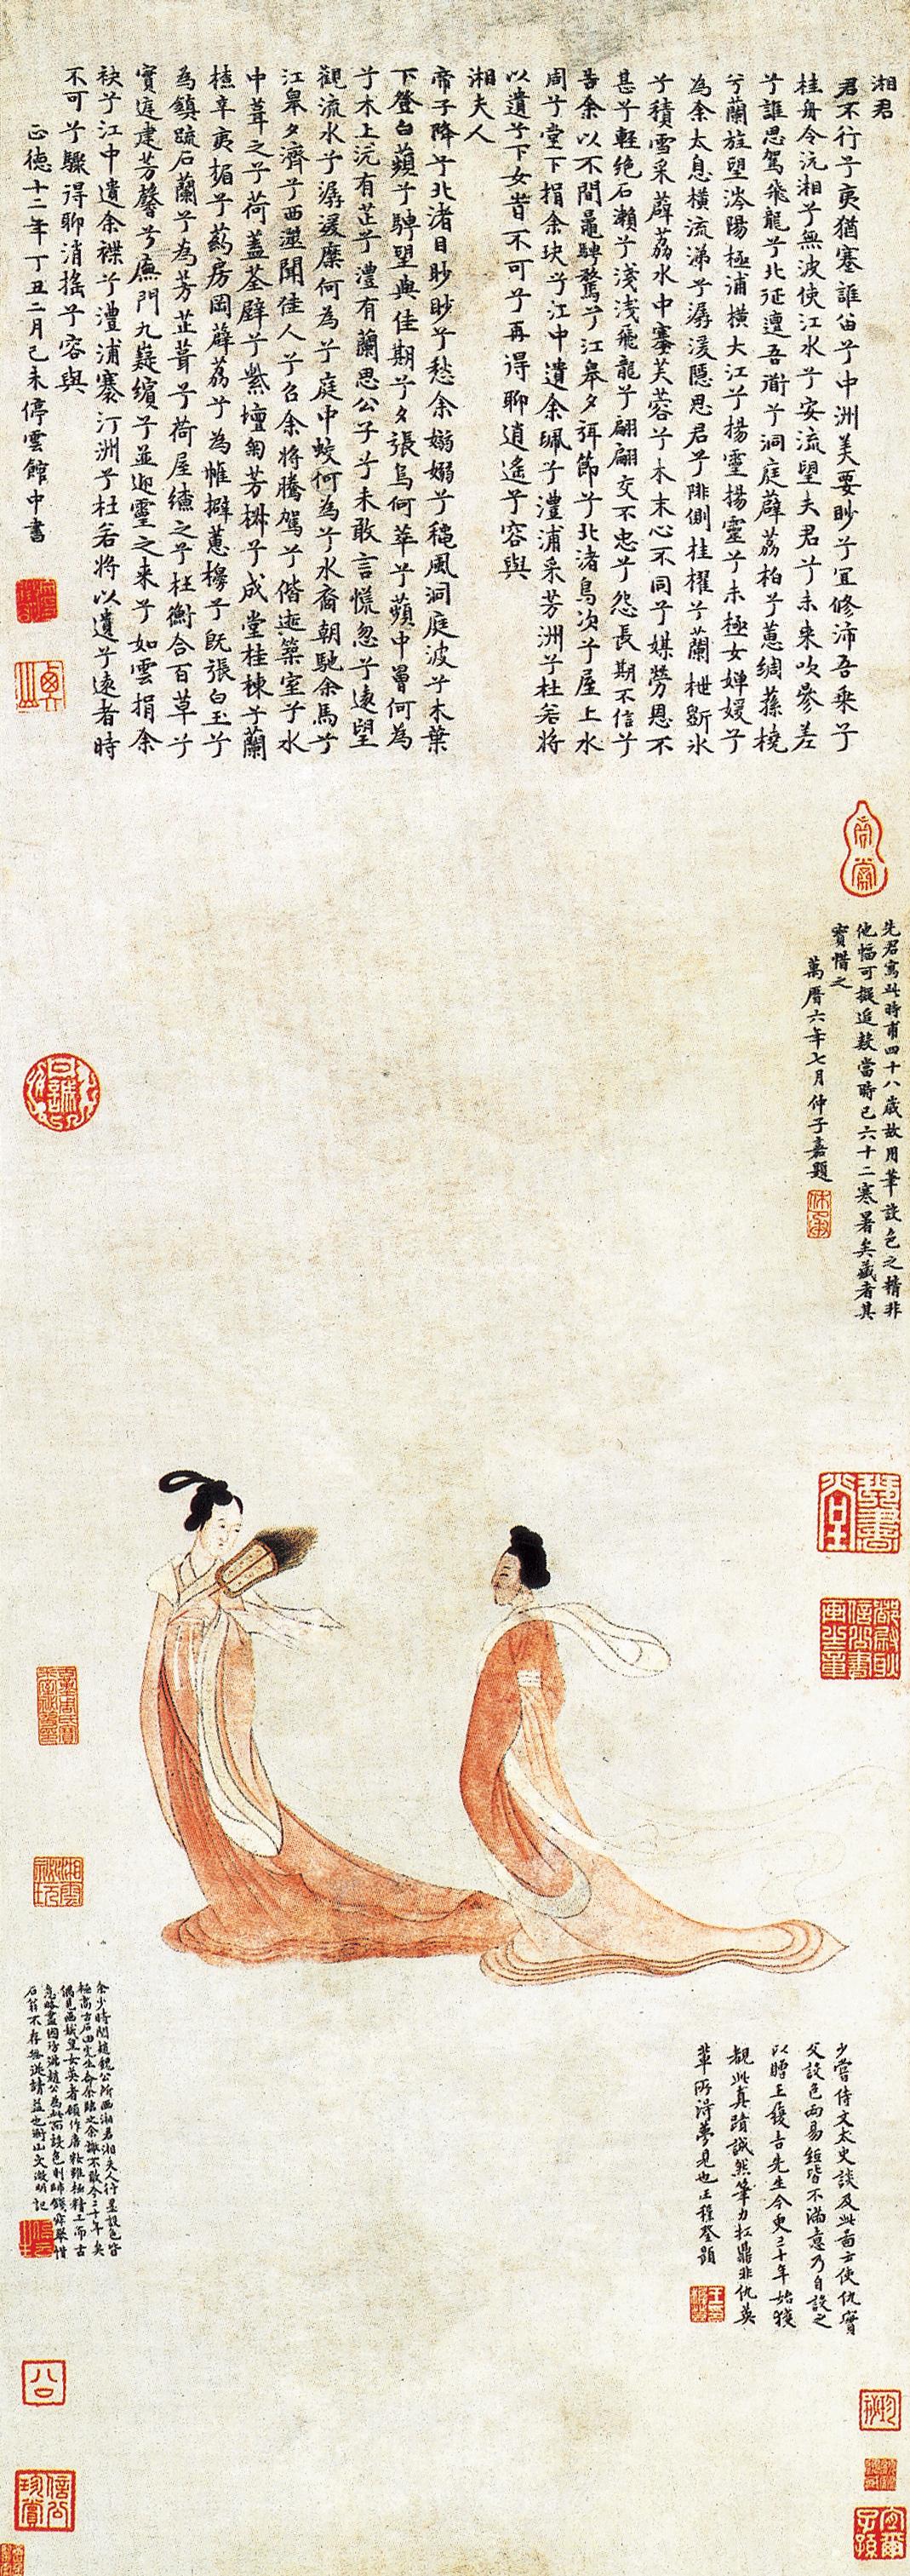 湘君
君不行兮夷猶蹇誰留兮中洲美要眇兮宜修沛吾乘兮
桂舟令沅湘兮無波使江水兮安流望夫君兮未來吹參差
兮誰思駕飛龍兮北征邅吾道兮洞庭薜荔柏兮蕙綢蓀橈
兮蘭旌望涔陽極浦橫大江兮揚靈揚靈兮未極女嬋媛兮
為余太息橫流涕兮潺湲隱思君兮陫側桂櫂兮蘭枻斵冰
兮積雪采薜荔水中搴芙蓉兮木末心不同兮媒勞恩不
甚兮輕絕石瀨兮淺淺飛龍兮翩翩交不忠兮怨長期不信兮
告余以不間鼂騁騖兮江皋夕弭節兮北渚鳥次兮屋上水
周兮堂下捐余玦兮江中遺余珮兮澧浦采芳洲兮杜若將
以遺兮下女旹不可兮再得聊逍遙兮容與
湘夫人
帝子降兮北渚目眇眇兮愁余嫋嫋兮秋風洞庭波兮木葉
下登白蘋兮騁望與佳期兮夕張鳥何萃兮蘋中罾何為
兮木上沅有芷兮澧有蘭思公子兮未敢言慌忽兮遠望
觀流水兮潺湲麋何為兮庭中蛟何為兮水裔朝馳余馬兮
江皋夕濟兮西澨聞佳人兮召余將騰駕兮偕逝築室兮水
中葺之兮荷蓋荃壁兮紫壇匊芳椒兮成堂桂棟兮蘭
橑辛夷楣兮葯房罔薜荔兮為帷擗蕙櫋兮既張白玉兮
為鎮疏石蘭兮為芳芷葺兮荷屋繚之兮杜衡合百草兮
實庭建芳馨兮廡門九嶷繽兮並迎靈之來兮如雲捐余
袂兮江中遺余褋兮澧浦搴汀洲兮杜若將以遺兮遠者時
不可兮驟得聊消搖兮容與
正德十二年丁丑二月己未停雲館中書
先君寫此時甫四十八歲故用筆設色之精非
他幅可擬追數當時已六十二寒暑矣藏者其
寶惜之
萬曆六年七月仲子嘉題
少嘗侍文太史談及此圖云使仇實
父設色兩易紙皆不滿意乃自設之
以贈王履吉先生今更三十年始獲
覩此真蹟誠然筆力扛鼎非仇英
輩所得夢見也王穉登題
余少時閱趙魏公所畫湘君湘夫人行墨設色皆
極高古石田先生命余臨之余謝不敢今二十年矣
偶見畫娥皇女英者顧作唐妝雖極精工而古
意略盡因仿佛趙公為此而設色則師錢舜舉惜
石翁不存無從請益也衡山文徵明記
琴書堂
信公珍賞
八公
宜爾子孫